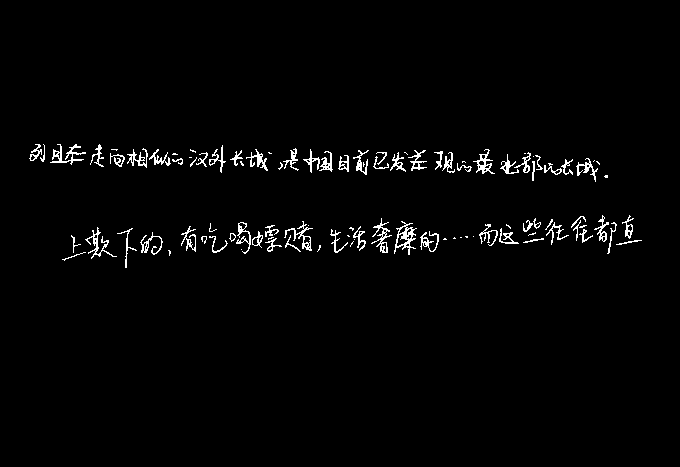 列且在走向相似的汉外长城,是中国目前已发在现的最北部的长城.
上欺下的,有吃喝嫖赌,生活奢靡的……而这些往往都直